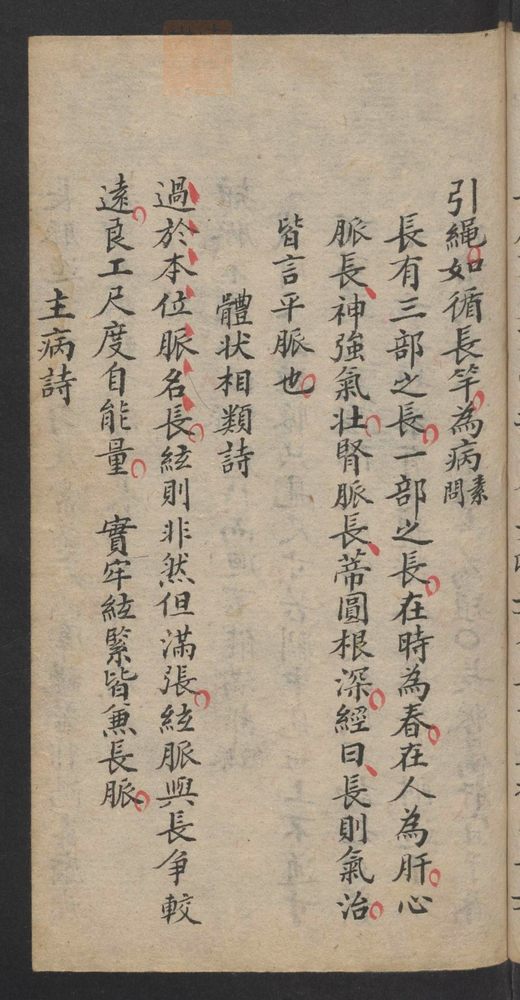 引縄如循長竿為病素問
長有三部之長一部之長在時為春在人為肝心
脈長神強氣壮腎脈長蒂圓根深經曰長則氣治
皆言平脈也
體状相類詩
過於本位脈名長絃則非然但滿張絃脈與長争較
遠良工尺度自能量 實牢絃緊皆兼長脈
主病詩